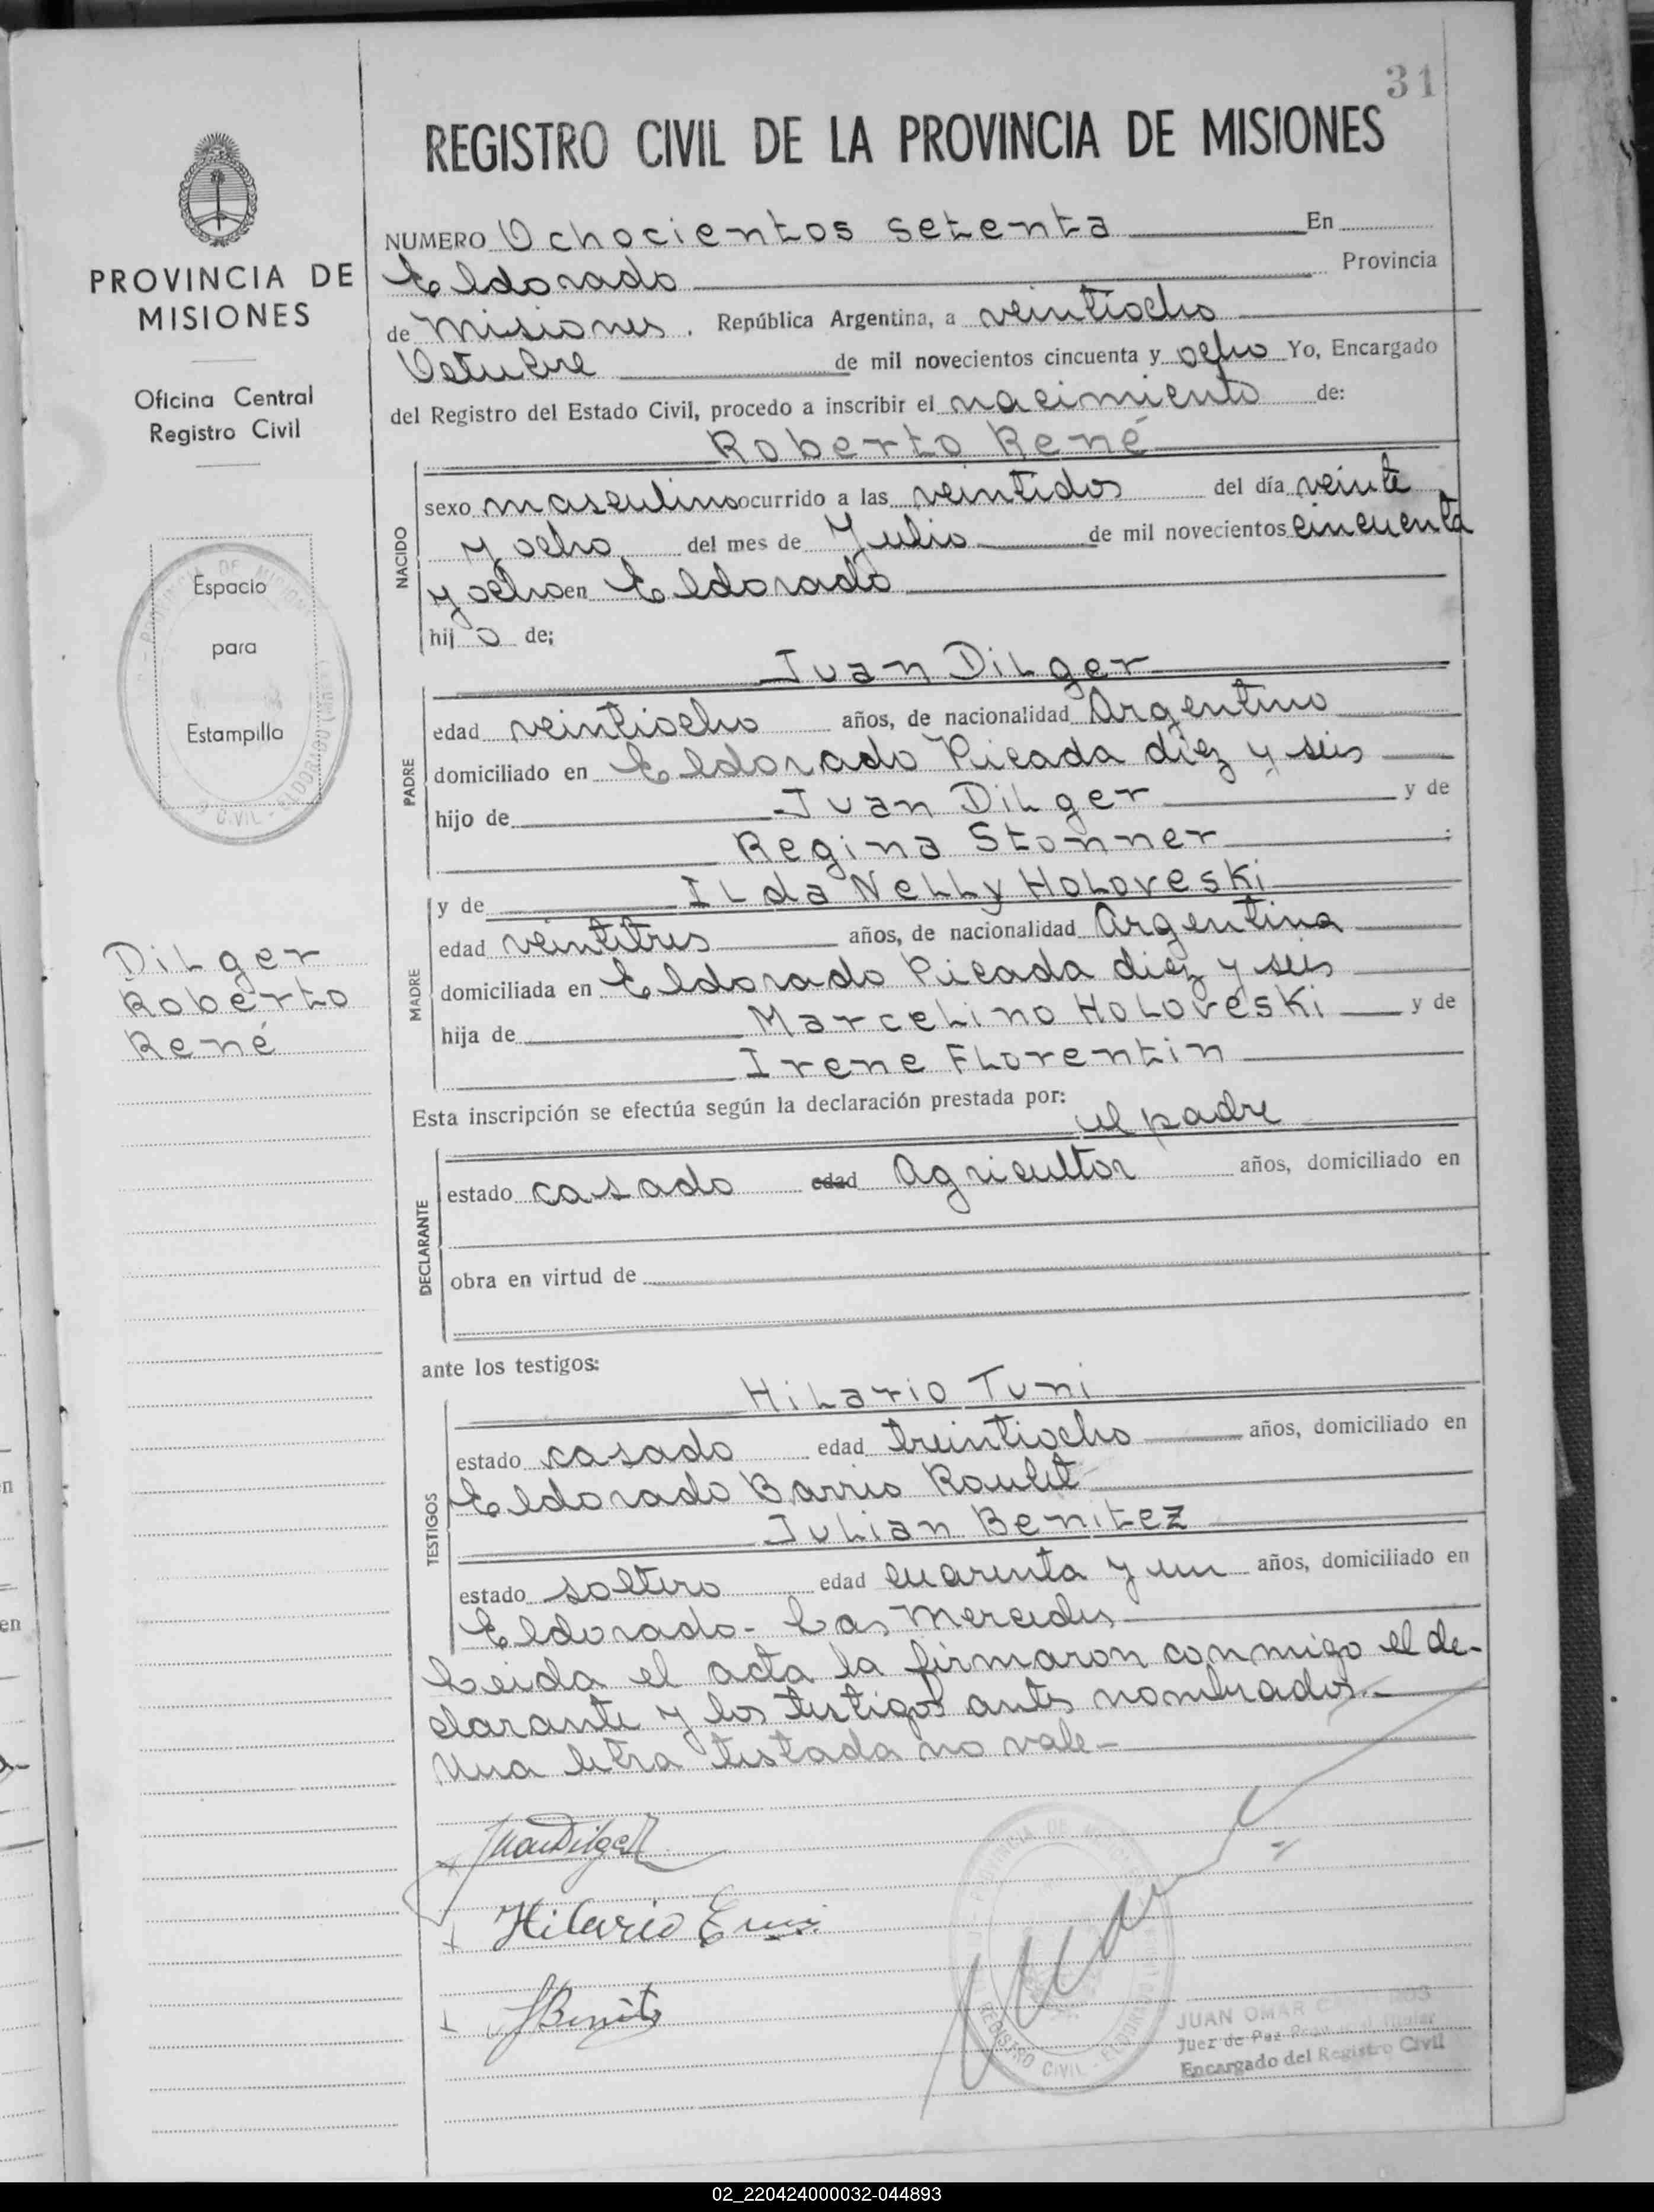 31
REGISTRO CIVIL DE LA PROVINCIA DE MISIONES
PROVINCIA DE
MISIONES
Oficina Central
Registro Civil
Espacio
para
Estampilla
Dilger
Roberto
René
NUMERO Ochocientos setenta En
Eldorado Provincia
de Misiones. República Argentina, a veintiocho
Octubre de mil novecientos cincuenta y ocho Yo, Encargado
del Registro del Estado Civil, procedo a inscribir el nacimiento de:
Roberto René
NACIDO
sexo masculino ocurrido a las veintidos del día veinte
y ocho del mes de Julio de mil novecientos cincuenta
y ocho en Eldorado
hijo de;
Juan Dilger
PADRE
edad veintiocho años, de nacionalidad Argentino
domiciliado en Eldorado Picada diez y seis
hijo de Juan Dilger y de
Regina Stonner
y de Ilda Nelly Holoveski
MADRE
edad veintitres años, de nacionalidad Argentina
domiciliada en Eldorado Picada diez y seis
hija de Marcelino Holoveski y de
Irene Florentin
Esta inscripción se efectúa según la declaración prestada por:
el padre
DECLARANTE
estado casado edad Agricultor años, domiciliado en
obra en virtud de
ante los testigos:
Hilario Tuni
TESTIGOS
estado casado edad treintiocho años, domiciliado en
Eldorado Barrio
Julian Benitez
estado soltero edad cuarenta y un años, domiciliado en
Eldorado- Las Mercedes
Leida el acta la firmaron conmigo el de-
clarante y los testigos antes nombrados.-
Una letra testada no vale-
Juan Dilger
Hilario
JBenitz
REGISTRO CIVIL - ELDORADO
JUAN OMAR
Juez de Paz
Encargado del Registro Civil
02_220424000032-044893